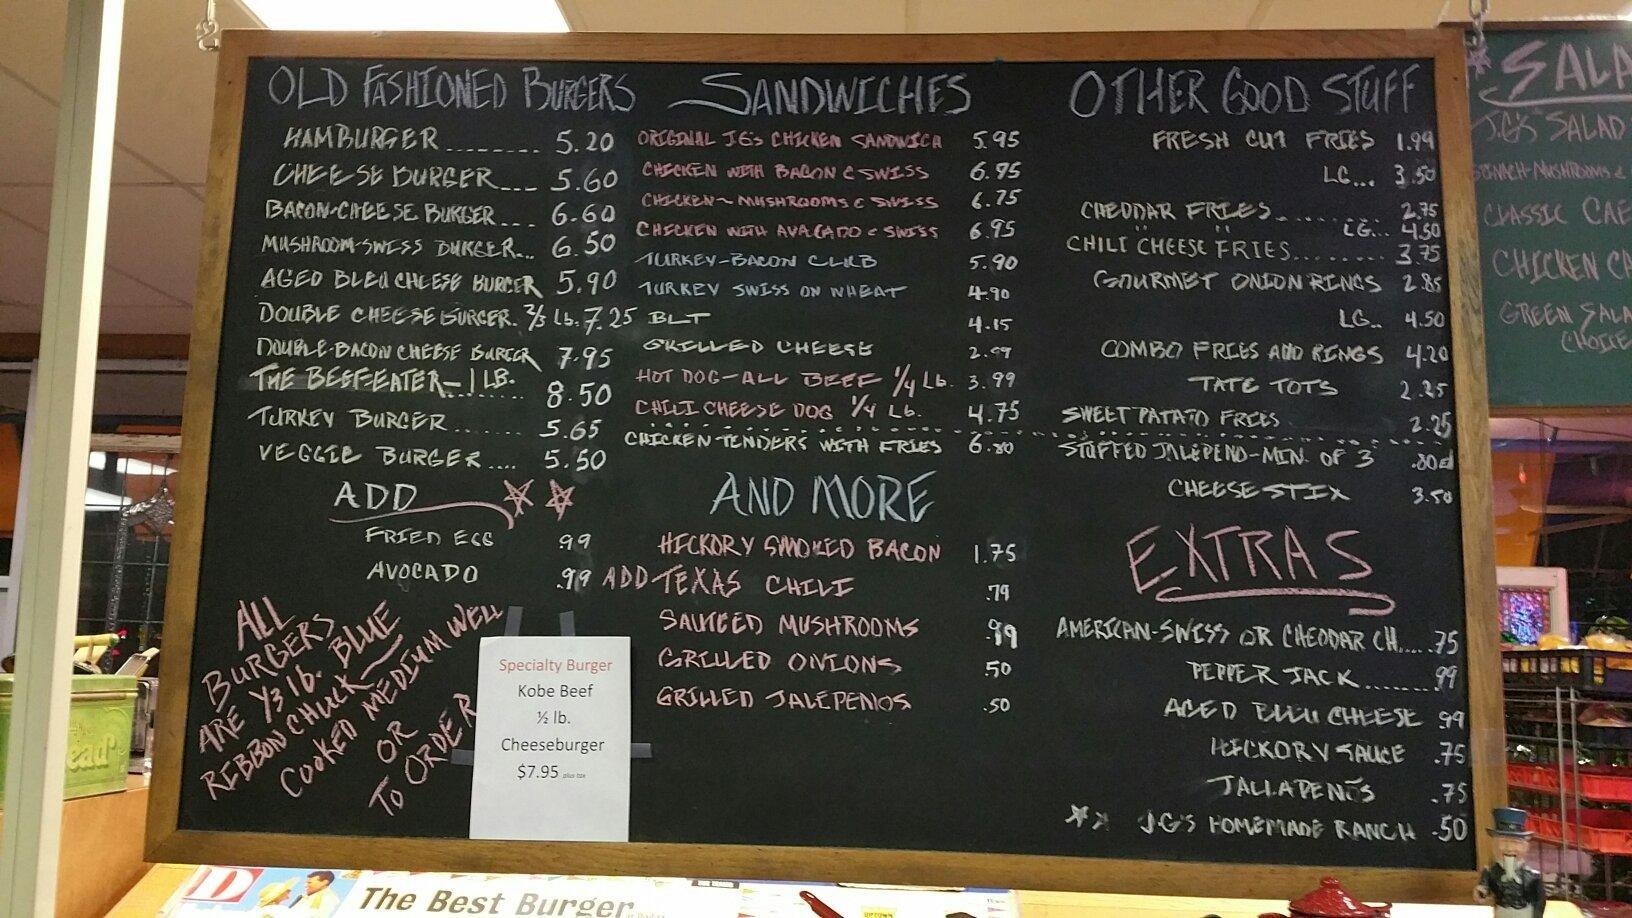 OLD FASHIONED BURGERS
HAMBURGER........ 5.20
CHEESE BURGER... 5.60
BACON-CHEESE BURGER... 6.60
MUSHROOM-SWISS BURGER... 6.50
AGED BLEU CHEESE BURGER 5.90
DOUBLE CHEESE BURGER. 2/3 Lb. 7.25
DOUBLE-BACON CHEESE BURGER 7.95
THE BEEF-EATER-1 LB. ........ 8.50
TURKEY BURGER....... 5.65
VEGGIE BURGER.... 5.50
ADD
FRIED EGG .99
AVOCADO .99
ALL
BURGERS
ARE 1/3 lb. BLUE
RIBBON CHUCK
COOKED MEDIUM WELL
OR
TO ORDER
Specialty Burger
Kobe Beef
½ lb.
Cheeseburger
$7.95 plus tax
SANDWICHES
ORIGINAL J.G's CHICKEN SANDWICH 5.95
CHICKEN WITH BACON & SWISS 6.95
CHICKEN~MUSHROOMS & SWISS 6.75
CHICKEN WITH AVACADO & SWISS 6.95
TURKEY-BACON CLUB 5.90
TURKEY SWISS ON WHEAT 4.90
BLT 4.15
GRILLED CHEESE 2.99
HOT DOG-ALL BEEF 1/4 Lb. 3.99
CHILI CHEESE DOG 1/4 Lb. 4.75
CHICKEN-TENDERS WITH FRIES 6.80
AND MORE
HICKORY SMOKED BACON 1.75
ADD TEXAS CHILI .79
SAUTEED MUSHROOMS .99
GRILLED ONIONS .50
GRILLED JALEPENOS .50
OTHER GOOD STUFF
FRESH CUT FRIES 1.99
LG... 3.50
CHEDDAR FRIES.......... 2.75
" " LG... 4.50
CHILI CHEESE FRIES........ 3.75
GOURMET ONION RINGS 2.85
LG.. 4.50
COMBO FRIES AND RINGS 4.20
TATE TOTS 2.25
SWEET PATATO FRIES 2.25
STUFFED JALEPENO-MIN. OF 3 .80
CHEESE STIX 3.50
EXTRAS
AMERICAN-SWISS OR CHEDDAR CH..... .75
PEPPER JACK........ .99
AGED BLEU CHEESE .99
HICKORY SAUCE .75
JALLAPENOS .75
J.G'S HOMEMADE RANCH .50
SALA
J.G'S SALAD
CLASSIC CAE
CHICKEN CA
GREEN SALA
CHOICE
D
The Best Burger
UPTOWN